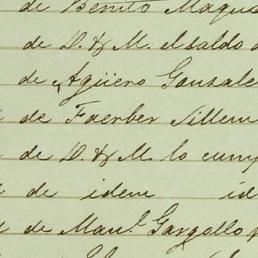 de Benito Magu
de D. & M. el saldo
de Agüero Gonsale
de Faerber Sillem
de D. & M. lo cump
de idem id
de Man.l Gargollo p